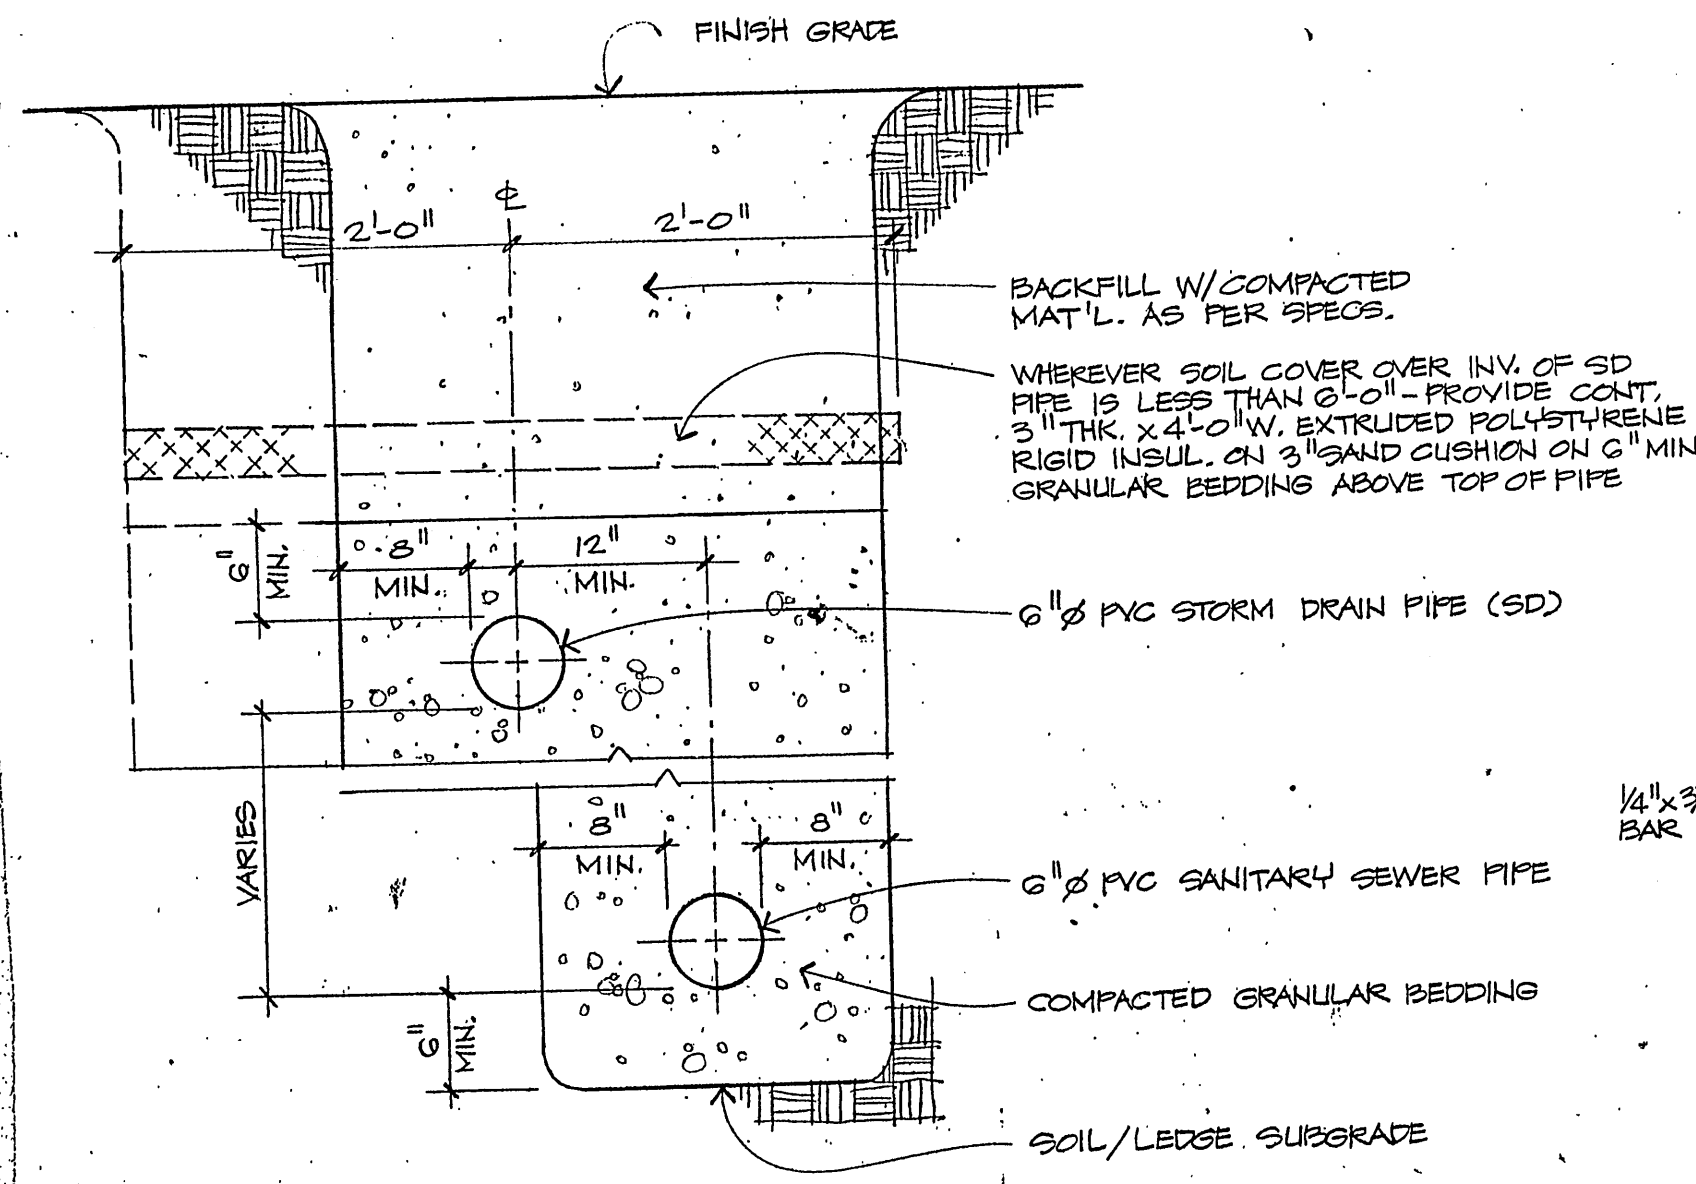 FINISH GRADE
℄
2'-0" 2'-0"
BACKFILL W/COMPACTED
MAT'L. AS PER SPECS.
WHEREVER SOIL COVER OVER INV. OF SD
PIPE IS LESS THAN 6'-0" - PROVIDE CONT.
3" THK. x 4'-0" W. EXTRUDED POLYSTYRENE
RIGID INSUL. ON 3" SAND CUSHION ON 6" MIN
GRANULAR BEDDING ABOVE TOP OF PIPE
6"
MIN.
8"
MIN.
12"
MIN.
6"Ø PVC STORM DRAIN PIPE (SD)
VARIES
8"
MIN.
8"
MIN.
1/4" x 3
BAR
6"Ø PVC SANITARY SEWER PIPE
COMPACTED GRANULAR BEDDING
6"
MIN.
SOIL/LEDGE SUBGRADE